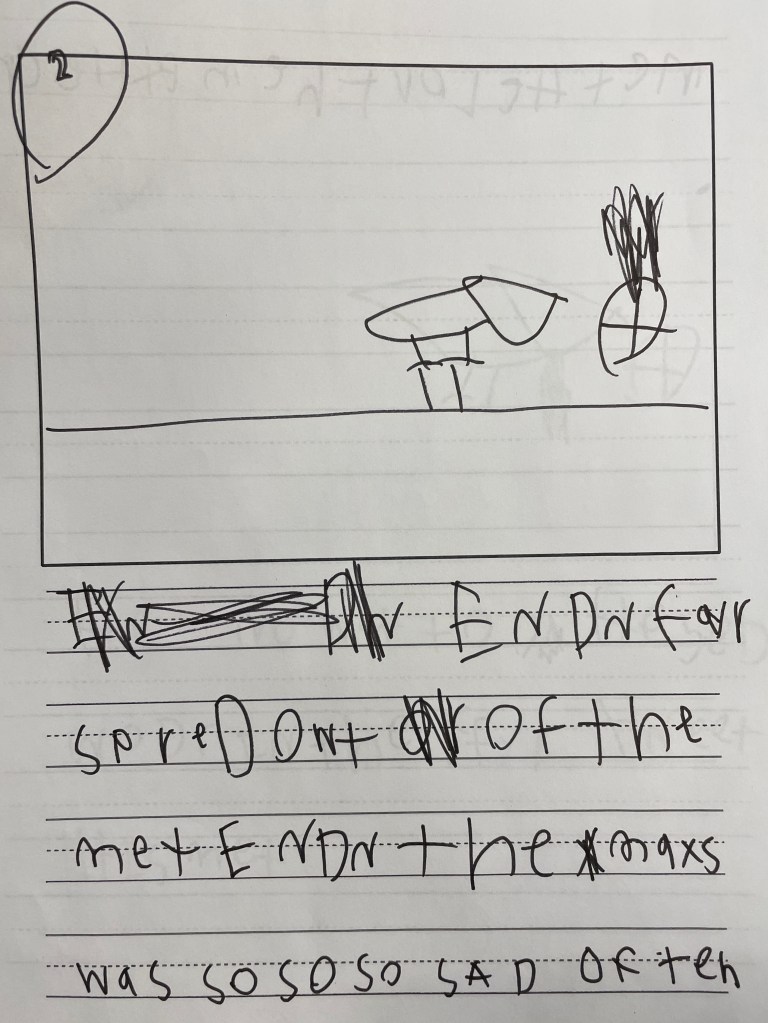 2
ENDN favr
spreD Ont Of the
met ENDN the maxs
was so so so SAD OF ten